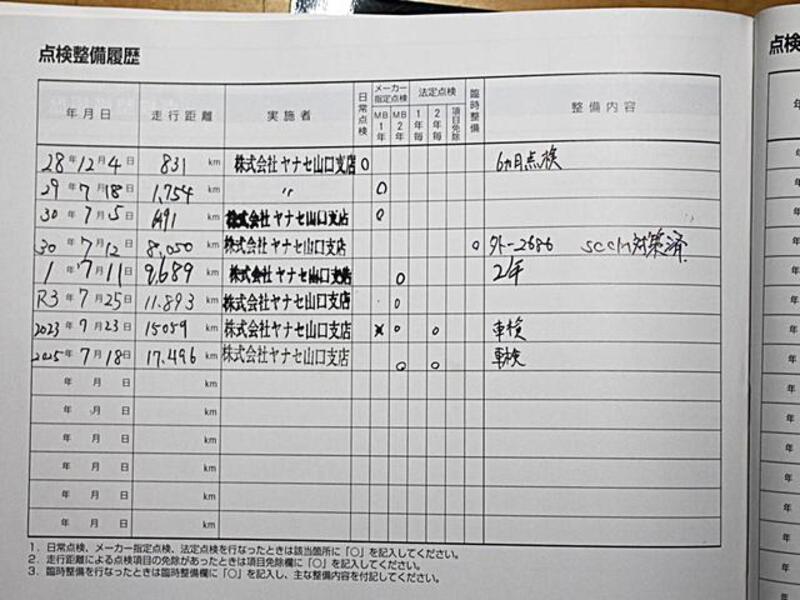 点検整備履歴
点検
年月日 走行距離 実施者 日常点検 メーカー指定点検 MB1年 MB2年 法定点検 1年毎 2年毎 項目免除 臨時整備 整備内容
28年12月4日 831km 株式会社ヤナセ山口支店 ○ 6ヵ月点検
29年7月18日 1,754km 〃 ○
30年7月5日 km 株式会社ヤナセ山口支店 ○
30年7月12日 8,050km 株式会社ヤナセ山口支店 ○ 外-2686 SCCM対策済
1年7月11日 9,689km 株式会社ヤナセ山口支店 ○ 2年
R3年7月25日 11.893km 株式会社ヤナセ山口支店 ○
2023年7月23日 15059km 株式会社ヤナセ山口支店 × ○ ○ 車検
2025年7月18日 17.496km 株式会社ヤナセ山口支店 ○ ○ 車検
年 月 日 km
年 月 日 km
年 月 日 km
年 月 日 km
年 月 日 km
年 月 日 km
1．日常点検、メーカー指定点検、法定点検を行なったときは該当箇所に「○」を記入してください。
2．走行距離による点検項目の免除があったときは項目免除欄に「○」を記入してください。
3．臨時整備を行なったときは臨時整備欄に「○」を記入し、主な整備内容を付記してください。